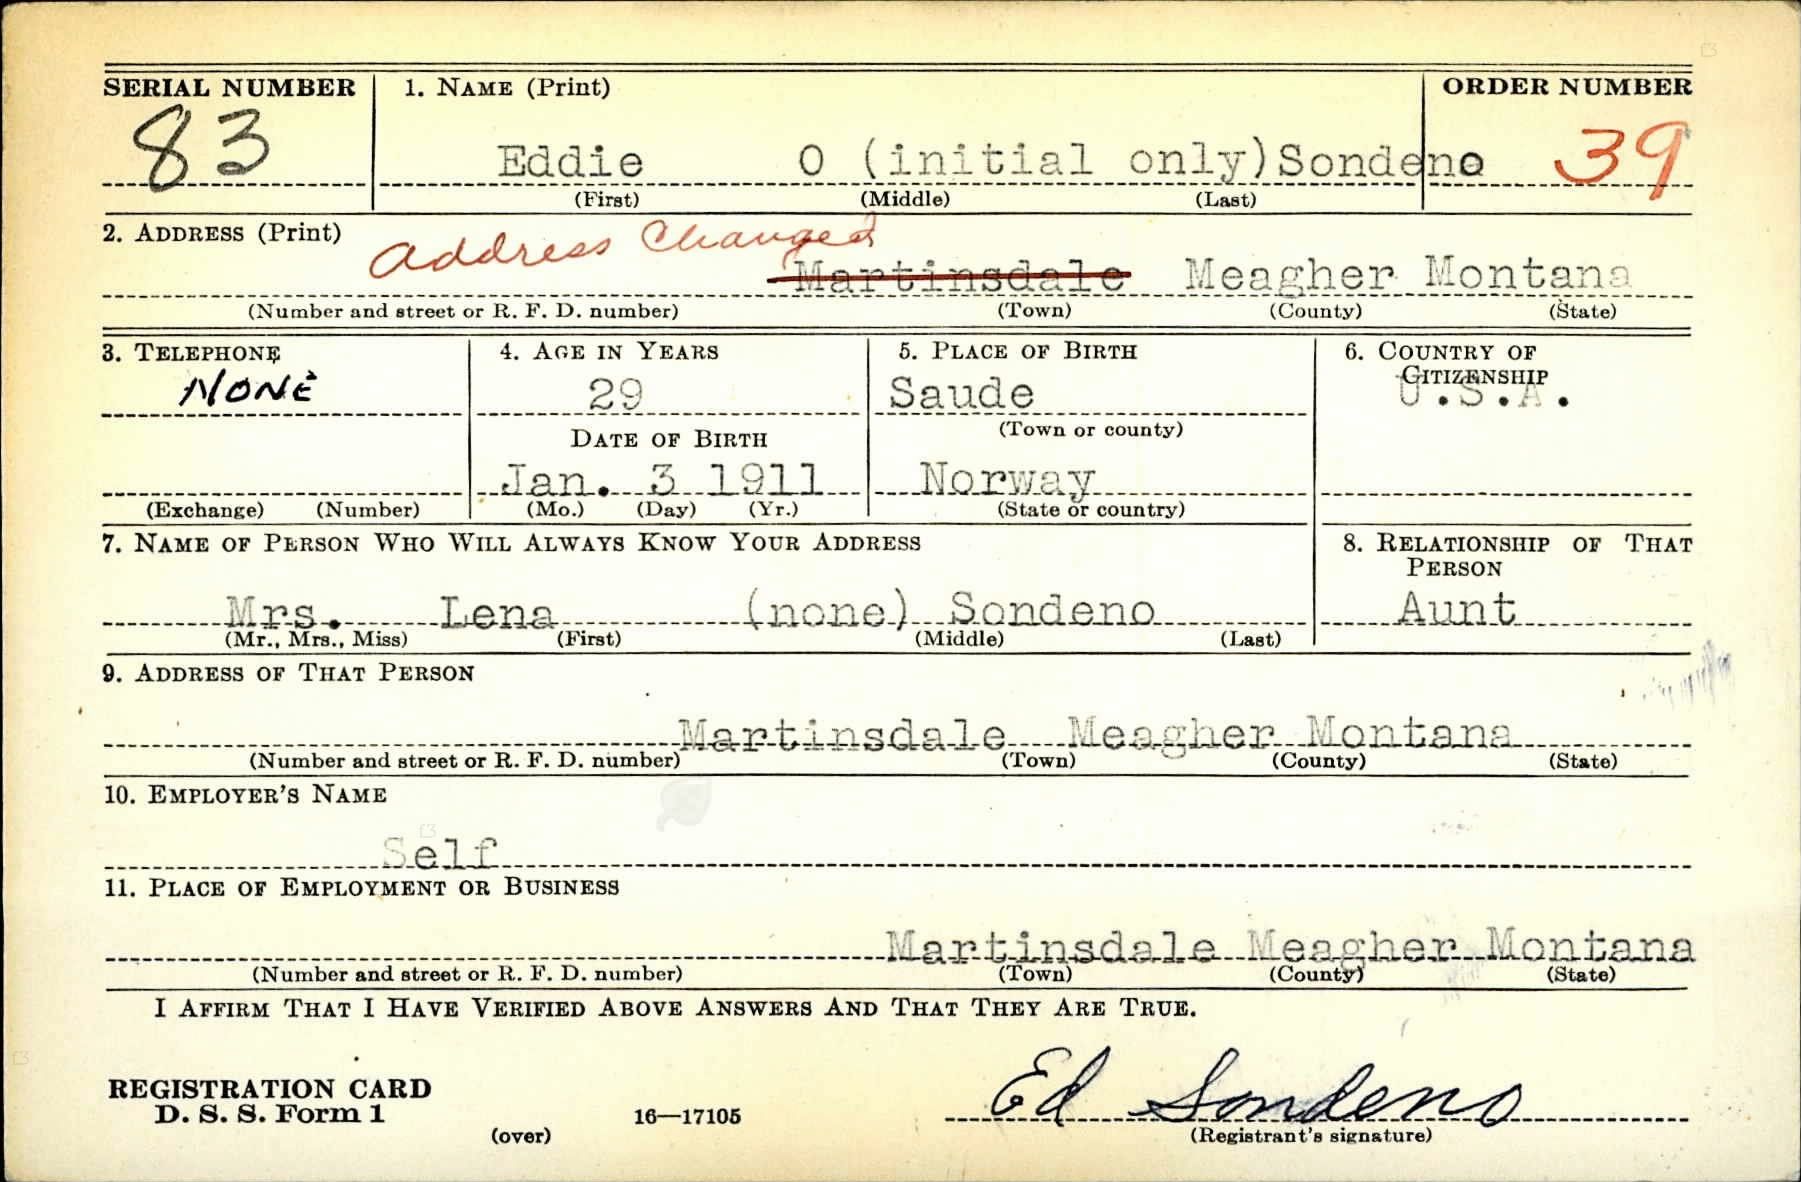 SERIAL NUMBER 1. NAME (Print) ORDER NUMBER
83 Eddie O (initial only) Sondeno 39
(First) (Middle) (Last)
2. ADDRESS (Print) Address Changed
Martinsdale Meagher Montana
(Number and street or R. F. D. number) (Town) (County) (State)
3. TELEPHONE 4. AGE IN YEARS 5. PLACE OF BIRTH 6. COUNTRY OF
CITIZENSHIP
NONE 29 Saude U.S.A.
DATE OF BIRTH (Town or county)
Jan. 3 1911 Norway
(Exchange) (Number) (Mo.) (Day) (Yr.) (State or country)
7. NAME OF PERSON WHO WILL ALWAYS KNOW YOUR ADDRESS 8. RELATIONSHIP OF THAT
PERSON
Mrs. Lena (none) Sondeno Aunt
(Mr., Mrs., Miss) (First) (Middle) (Last)
9. ADDRESS OF THAT PERSON
Martinsdale Meagher Montana
(Number and street or R. F. D. number) (Town) (County) (State)
10. EMPLOYER'S NAME
Self
11. PLACE OF EMPLOYMENT OR BUSINESS
Martinsdale Meagher Montana
(Number and street or R. F. D. number) (Town) (County) (State)
I AFFIRM THAT I HAVE VERIFIED ABOVE ANSWERS AND THAT THEY ARE TRUE.
REGISTRATION CARD
D. S. S. Form 1 16—17105 Ed Sondeno
(over) (Registrant's signature)